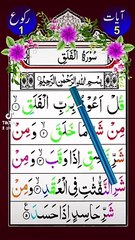 آیات رکوع
5 1
سُوْرَةُ الْفَلَقِ
بِسْمِ اللهِ الرَّحْمٰنِ الرَّحِيْمِ
قُلْ اَعُوْذُ بِرَبِّ الْفَلَقِ
مِنْ شَرِّ مَا خَلَقَ وَمِنْ
شَرِّ غَاسِقٍ اِذَا وَقَبَ وَمِنْ
شَرِّ النَّفّٰثٰتِ فِي الْعُقَدِ وَمِنْ
شَرِّ حَاسِدٍ اِذَا حَسَدَ